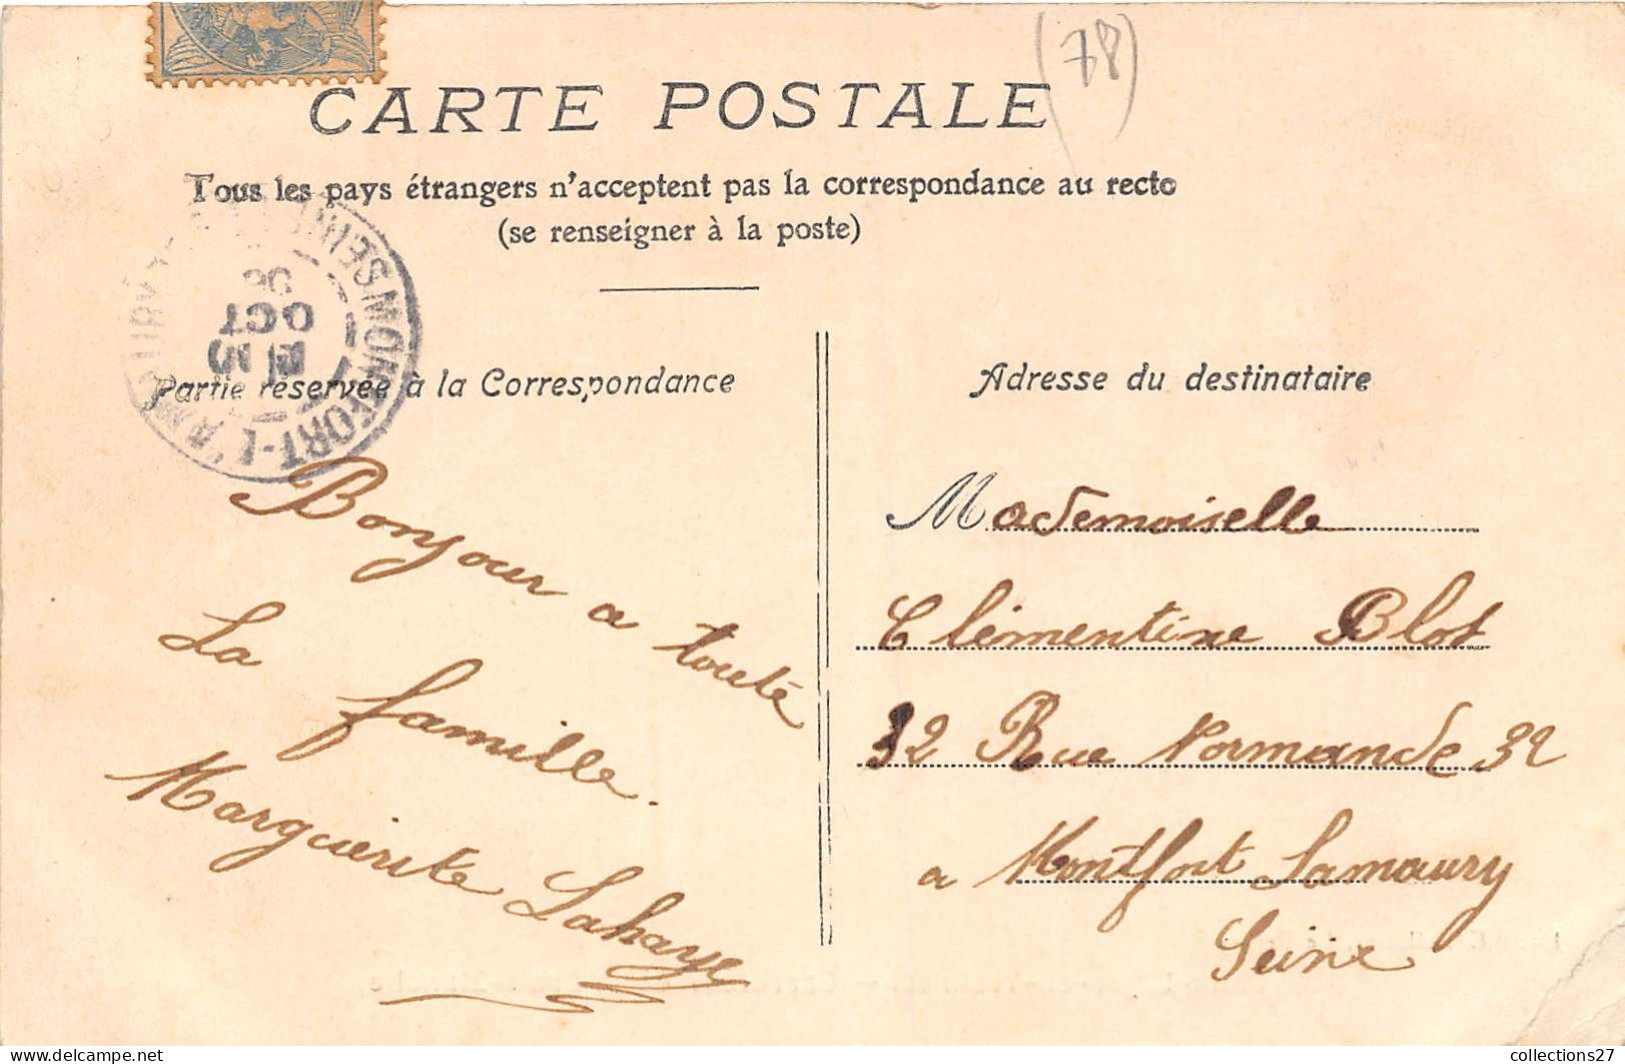 (78)
CARTE POSTALE
Tous les pays étrangers n'acceptent pas la correspondance au recto
(se renseigner à la poste)
Partie réservée à la Correspondance
MONTFORT-L'AMAURY
OCT
Bonjour a touté
La famille.
Marguerite Lahaye
Adresse du destinataire
Mademoiselle
Clémentine Blot
32 Rue Normande 32
a Montfort Lamaury
Seine
collections27